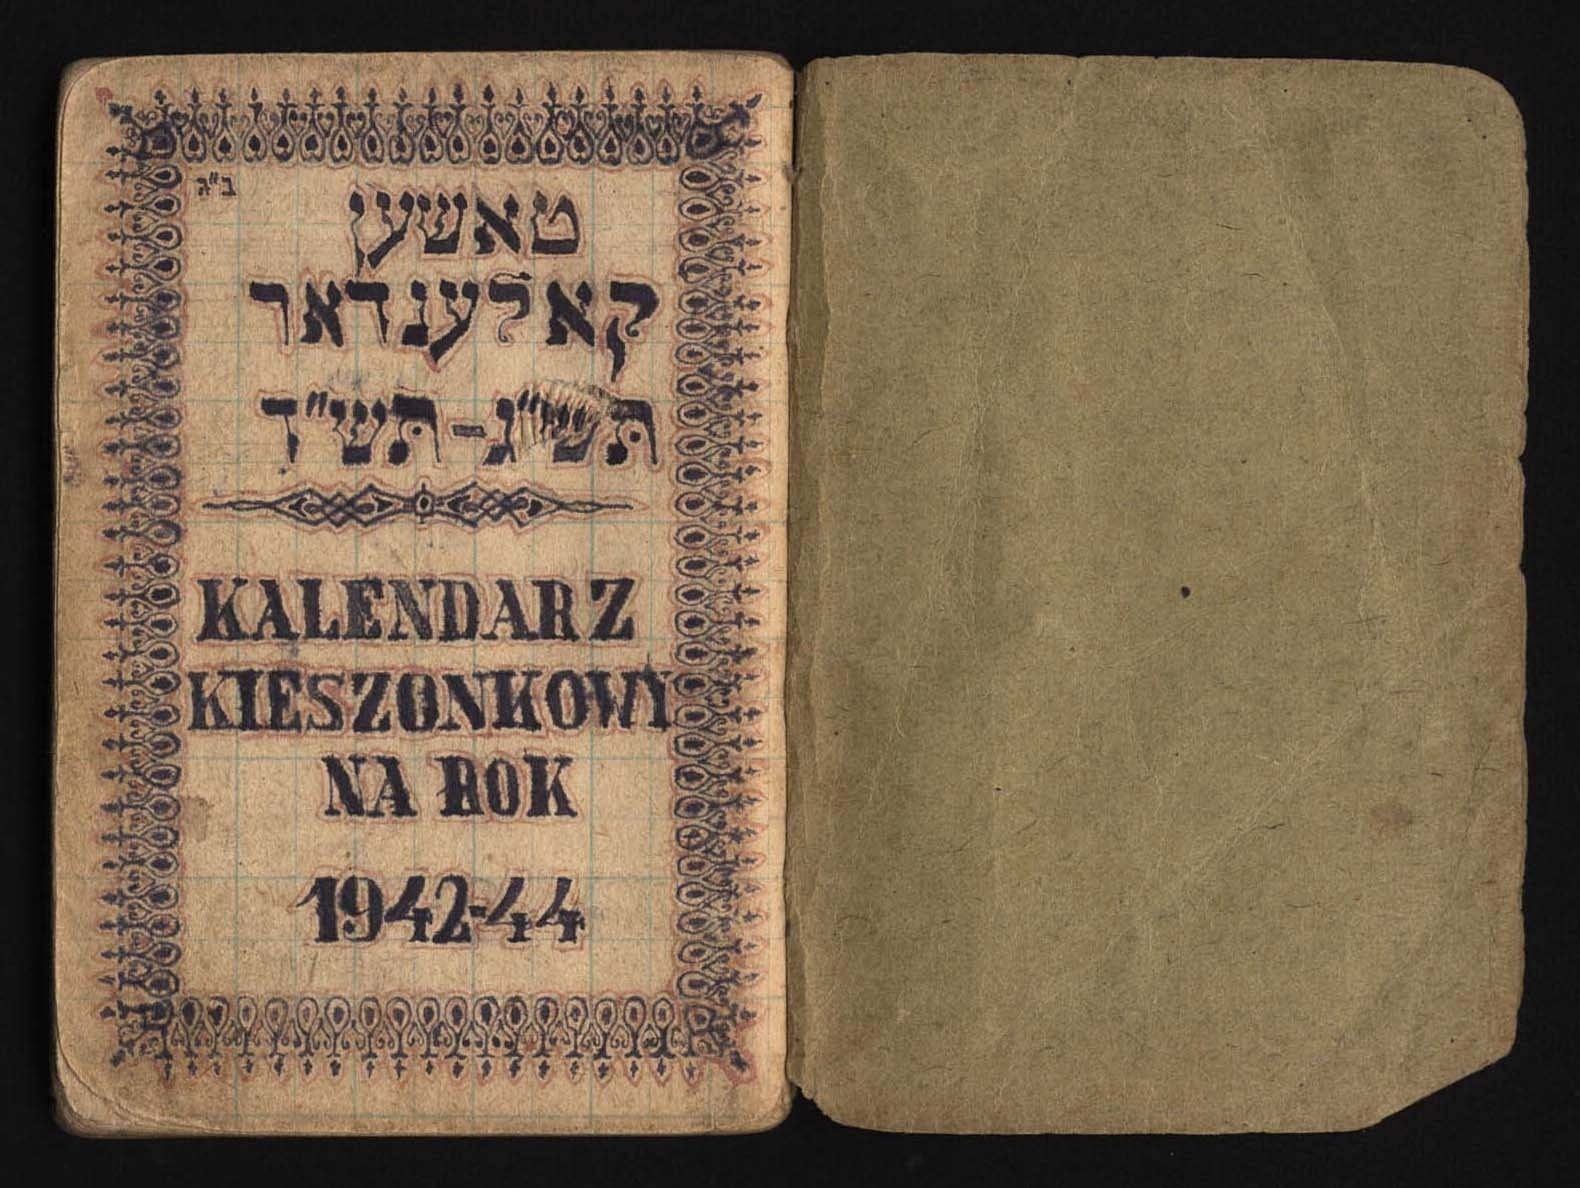 ב"ג
טאשען
קאלענדאר
תש"ג-תש"ד
KALENDARZ
KIESZONKOWY
NA ROK
1942-44